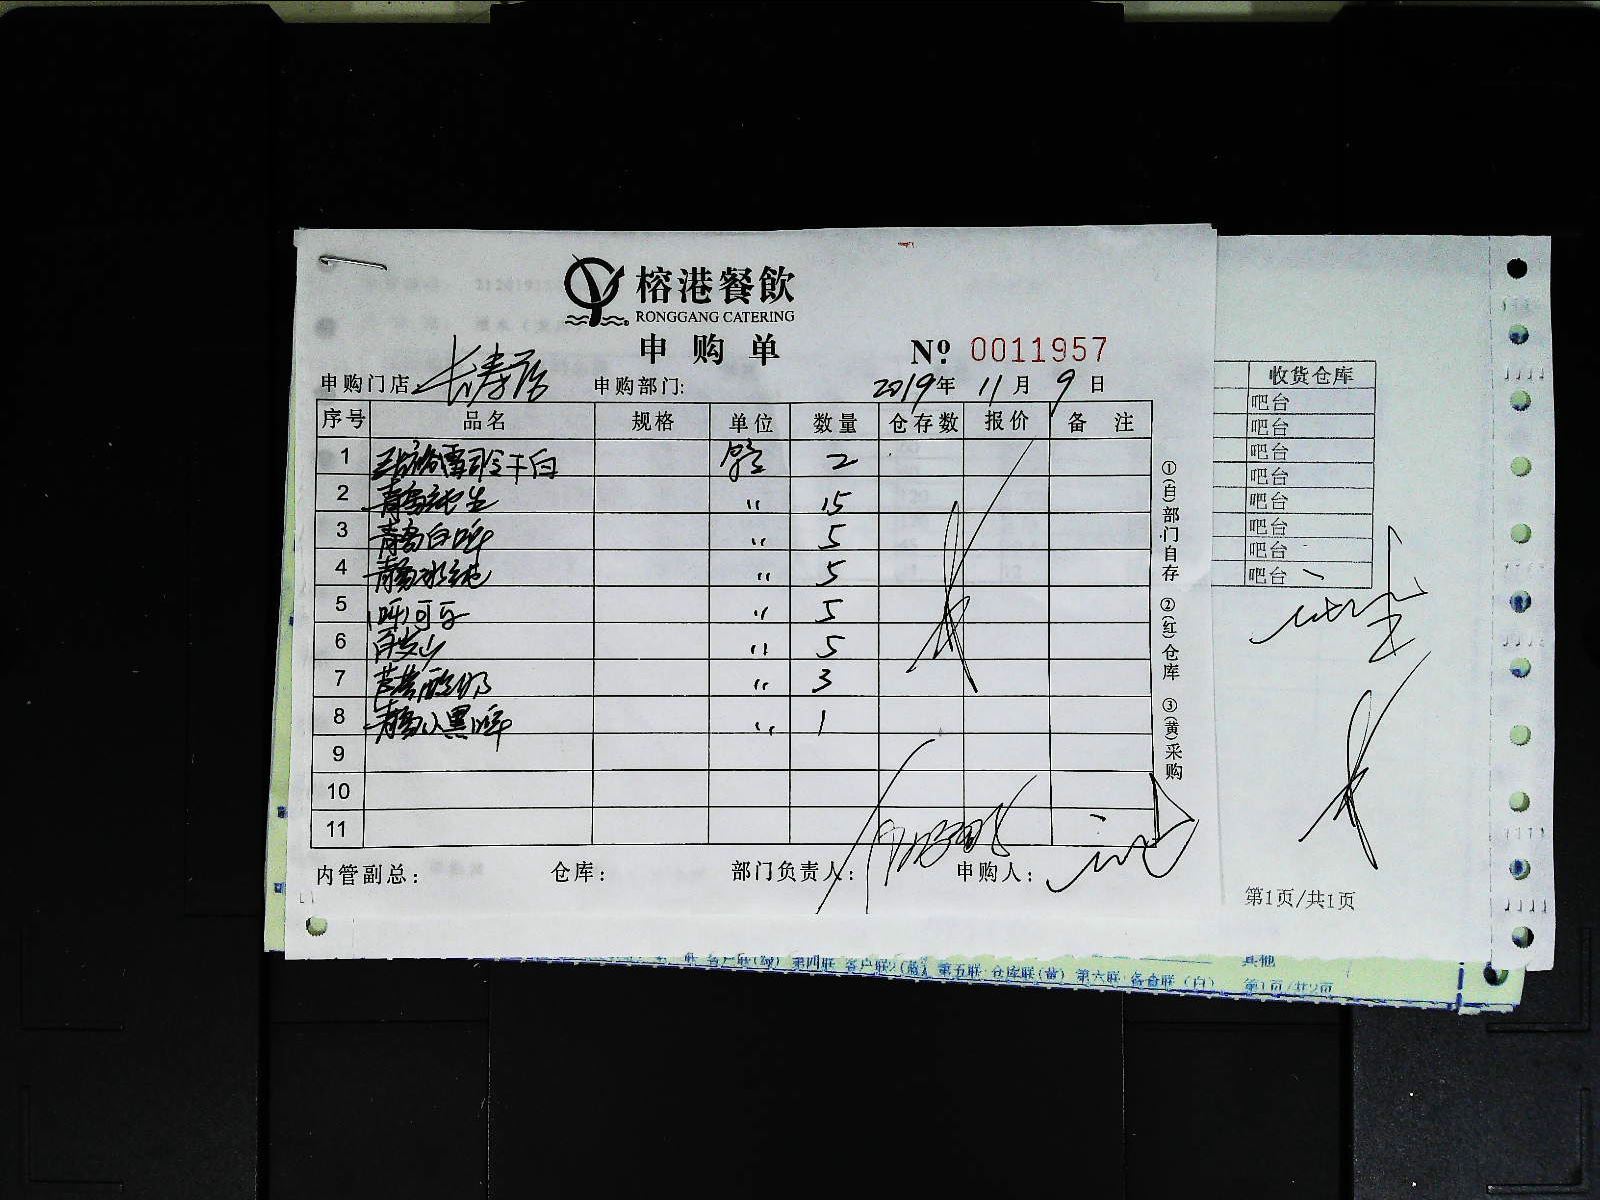 榕港餐飲
RONGGANG CATERING
申购单
Nº 0011957
申购门店 长寿店 申购部门: 2019年 11月 9日
序号 品名 规格 单位 数量 仓存数 报价 备注
1 张裕雷司令干白 2
2 青岛纯生 〃 15
3 青岛白啤 〃 5
4 青岛冰纯 〃 5
5 (听)可乐 〃 5
6 百岁山 〃 5
7 芦荟酸奶 〃 3
8 青岛小黑啤 〃 1
9
10
11
内管副总: 仓库: 部门负责人: 申购人:
①(白)部门自存 ②(红)仓库 ③(黄)采购
收货仓库
吧台
吧台
吧台
吧台
吧台
吧台
吧台
吧台
第1页/共1页
客户联2(蓝) 第五联:仓库联(黄) 第六联:备查联(白)
其他
第1页/共2页